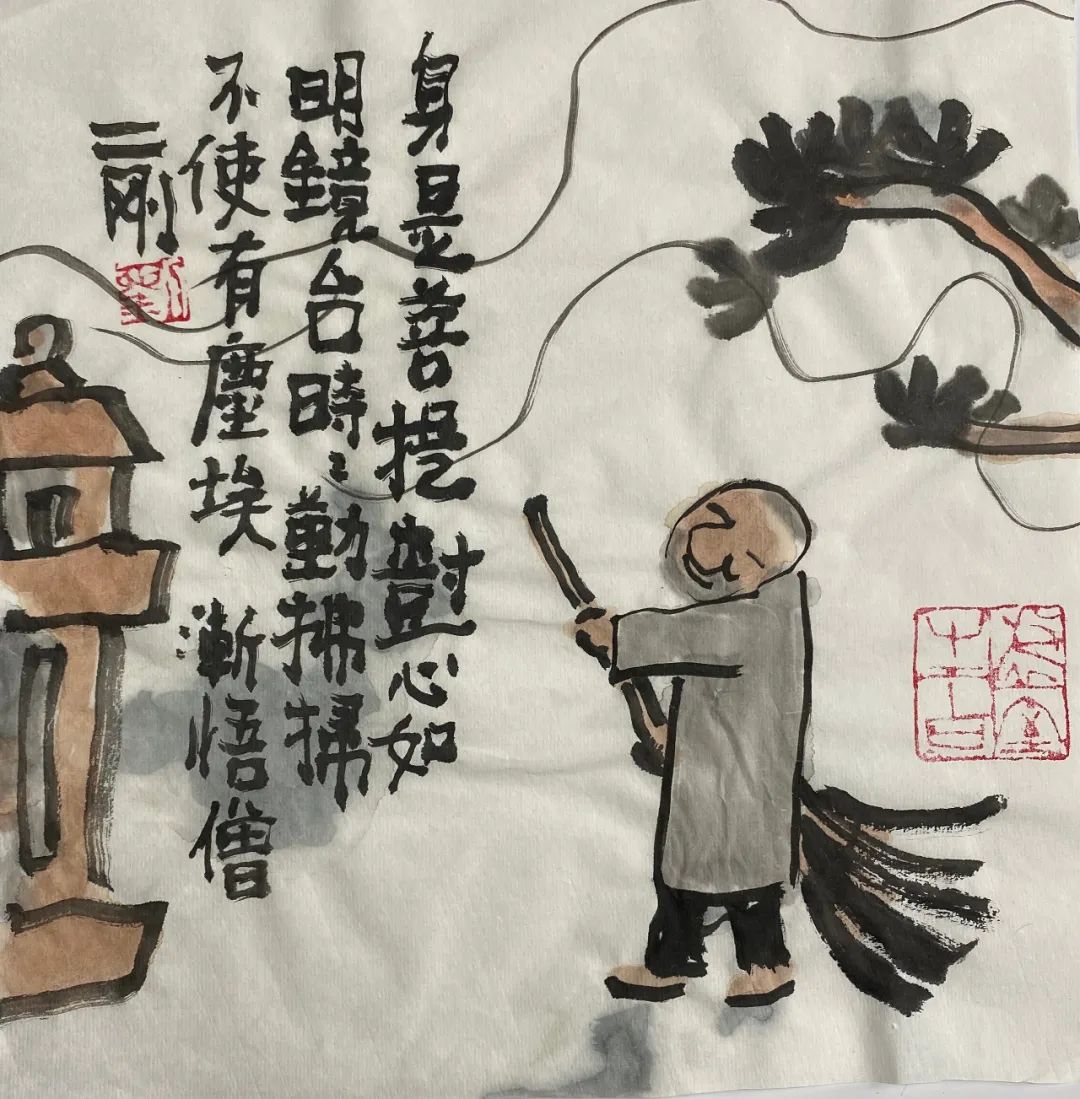 身是菩提樹心如
明鏡台時々勤拂掃
不使有塵埃 漸悟僧
二剛